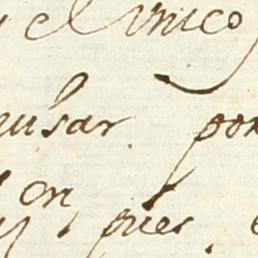 y el vnico
usar por
on
pues